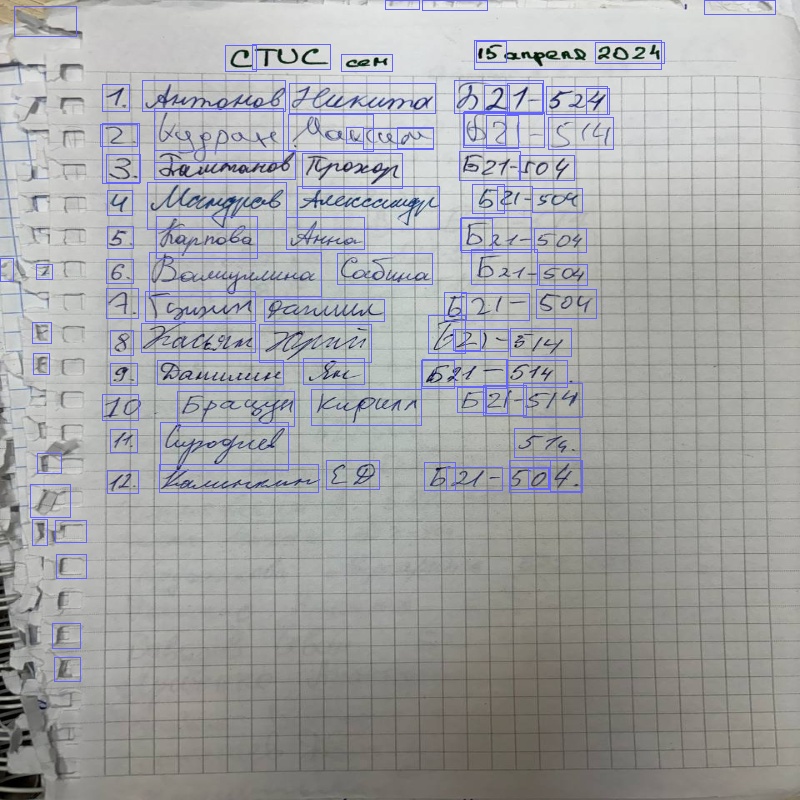 СТИС сем 15 апреля 2024
1. Антонов Никита Б21-524
2. Кудран Максим Б21-514
3. Таштанов Прохор Б21-504
4 Мандров Александр Б21-504
5. Карпова Анна Б21-504
6. Валиуллина Сабина Б21-504
7. Даниил Б21-504
8 Касьян Юрий Б21-514
9. Данилин Ян Б21-514.
10. Брацун Кирилл Б21-514
11. 514.
12. Калинкин ЕД Б21-504.